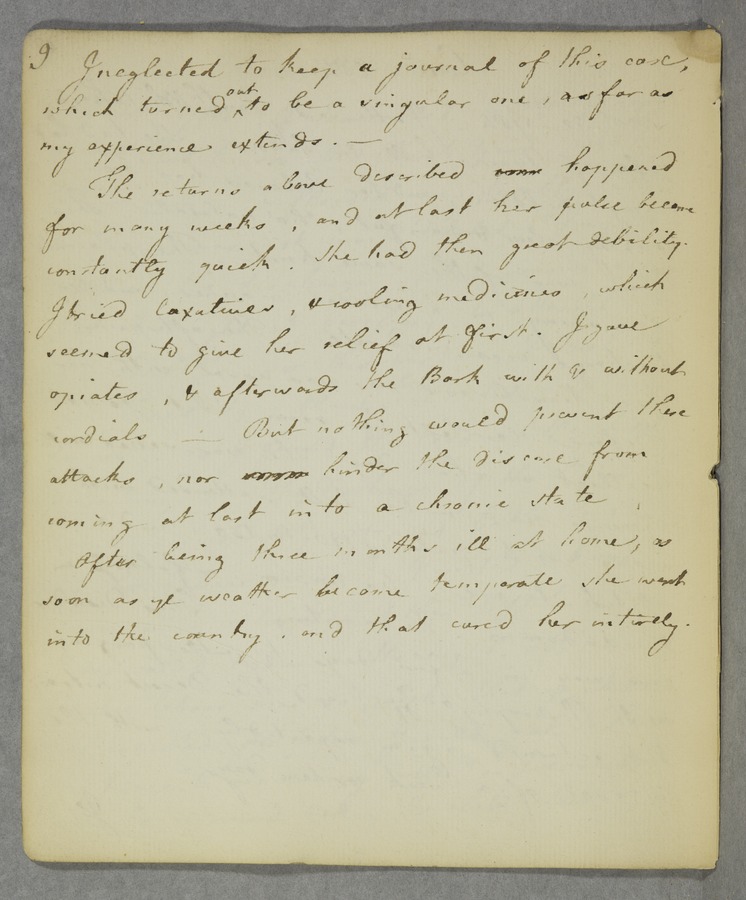 9 I neglected to keep a journal of this case,
which turned out to be a singular one, as far as
my experience extends. —
The returns above described happened
for many weeks, and at last her pulse became
constantly quick. She had then great debility.
I tried laxatives, & cooling medicines, which
seemed to give her relief at first. I gave
opiates, & afterwards the Bark with & without
cordials — But nothing would prevent these
attacks, nor hinder the disease from
coming at last into a chronic state.
After being three months ill at home, as
soon as ye weather became temperate she went
into the country, and that cured her intirely.